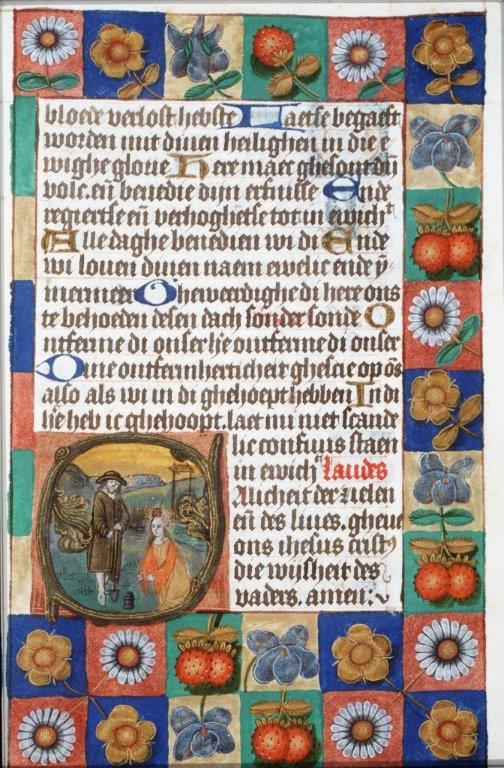 bloede verlost hebste Laetse begaeft
worden mit dinen heilighen in die e
wighe glorie Here maec ghesont dijn
volc en̄ benedie dijn erfnisse Ende
regiertse en̄ verhoghetse tot in ewichz
Alle daghe benedien wi di Ende
wi louen dinen naem ewelic ende ȳ
mmermeer Gheweerdighe di here ons
te behoeden desen dach sonder sonde O
ntferme di onser he ontferme di onser
Dine ontfermherticheit ghescie op ōs
also als wi in di ghehoept hebben In di
he heb ic ghehoopt. laet mi niet scande
lic confuus staen
in ewich Laudes
Nicheit der zielen
en̄ des liues. gheue
ons ihesus crist
die wijsheit des
vaders. amen: